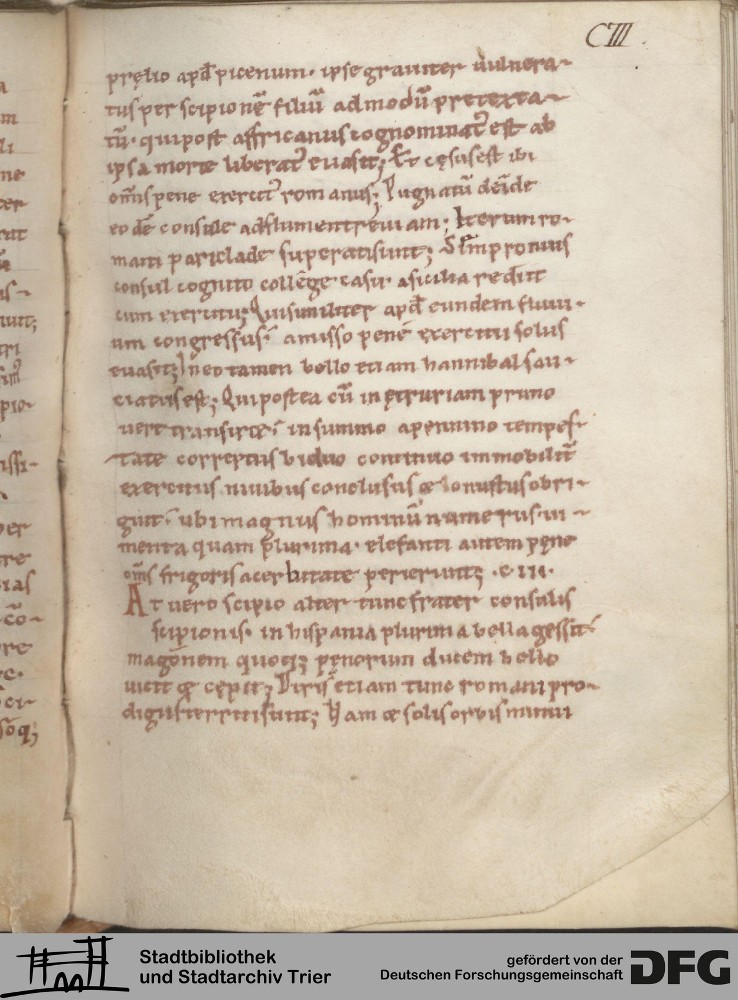 CIII.
a
m
li
ne
ter
rut
ã
is-
iunt;
tri
sim̃
pio-
issi-
per
tre
ias
cõ-
re
te.
cer
sõq;
pręlio apđ picenum· ipse grauiter uulnera-
tus per scipionẽ filiũ admodũ pretexta-
tũ· qui post affricanus cognominat᷒ est ab
ipsa morte liberat᷒ euasit; Et cęsus est ibi
om̃s pene exercit᷒ romanus; Pugnatũ deĩde
eodẽ consule ad flumen treuiam; Iterum ro-
mani pari clade superati sunt; Sẽmpronius
consul cognito collẽge casu· a sicilia rediit
cum exercitu; Qui similiter apđ eundem fluui-
um congressus· amisso pene exercitu solus
euasit; In eo tamen bello etiam hannibal sau-
ciatus est; Qui postea cũ in ętruriam primo
uere transiret· in summo apennino tempes-
tate correptus biduo continuo immobilit᷒
exercitus niuibus conclusus & onustus obri-
guit· ubi magnus hominũ numerus· iu-
menta quam plurima· elefanti autem pęne
om̃s frigoris acerbitate perierunt; ·CIII·
At uero scipio alter tunc frater consulis
scipionis· in hispania plurima bella gessit·
magonem quoq; pęnorum ducem bello
uicit & cępit; Diris etiam tunc romani pro-
digiis territi sunt; Nam & solis orbis minui
Stadtbibliothek
und Stadtarchiv Trier
gefördert von der
Deutschen Forschungsgemeinschaft
DFG